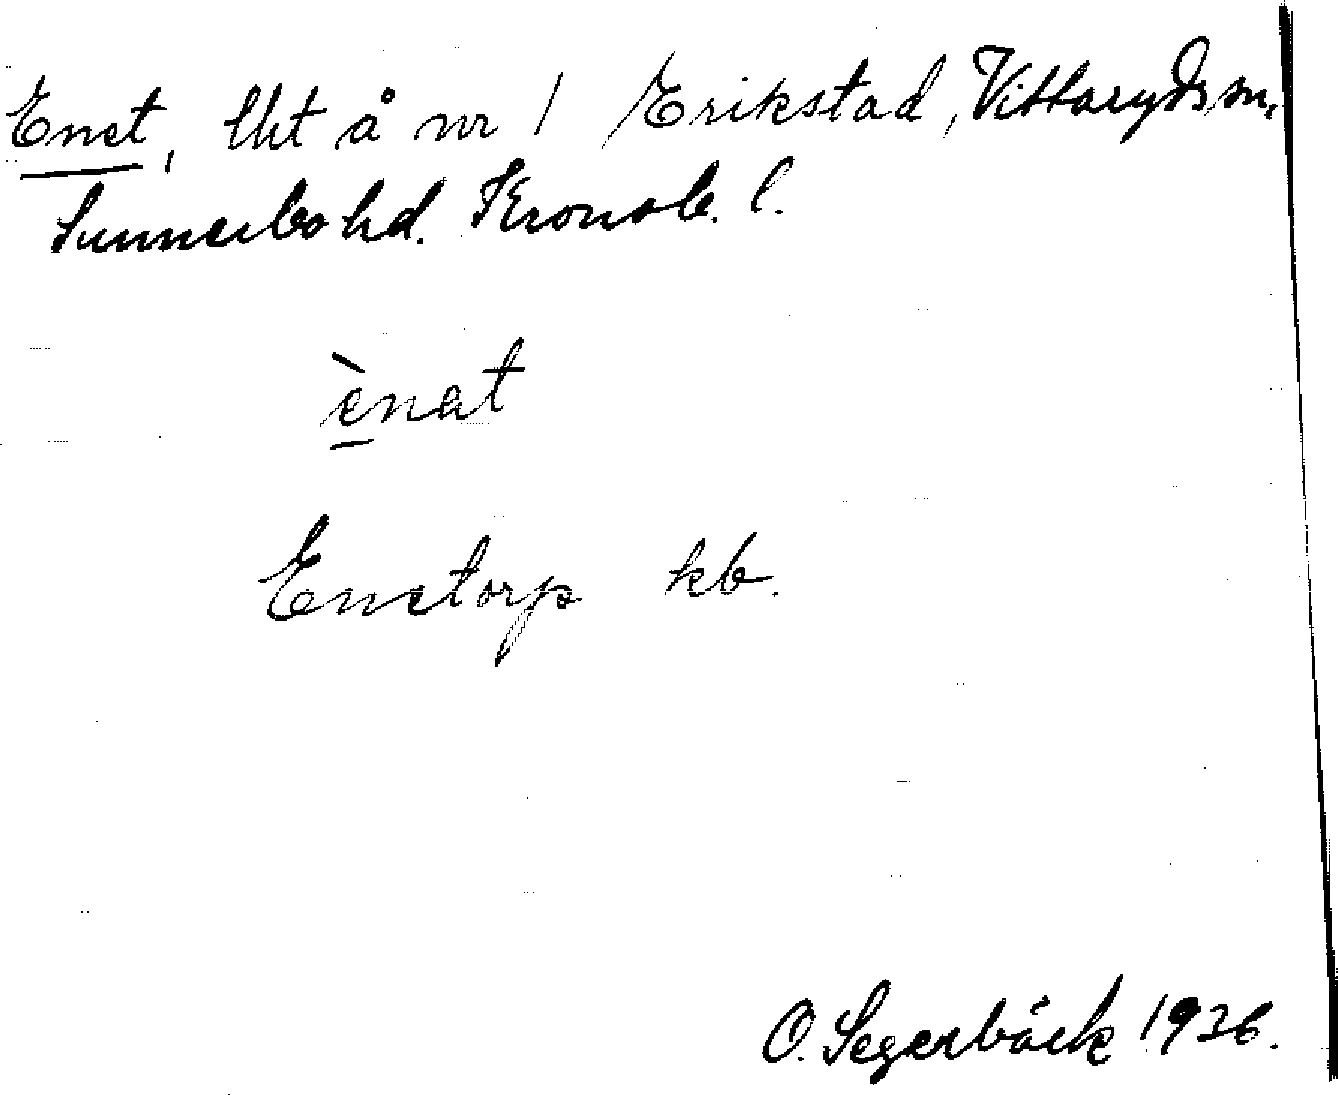 Enet, lht å nr 1 Erikstad, Vittaryds sn,
Sunnerbo hd. Kronob. l.
ènat
Enetorp kb.
O. Segerbäck 1926.